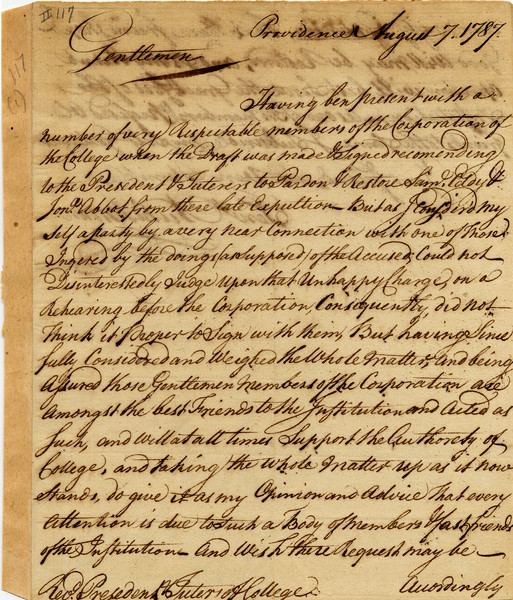 II 117
117
(1)
Providence August 7. 1787.
Gentlemen
Having ben present with a
number of very Respectable members of the Corporation of
the College when the Draft was made & Signed recomending
to the President & Tuters to Pardon & Restore Saml. Eddy &
Jona. Abbot from there late Expultion — But as I Considerd my
self a party by a very near Connection with one of Those
Ingered by the doings (as supposed) of the Accused, Could not
Disinterestedly Judge upon that Unhappy Charge, on a
Rehearing before the Corporation, Consequently, did not
Think it Proper to Sign with them, But having Since
fully Considered and Weighed the Whole Matter, and being
Assured those Gentlemen Members of the Corporation are
Amongst the best Friends to the Institution and Acted as
Such, and will at all times Support the Authorety of
College, and taking the Whole Matter up as it now
Stands, do give it as my Opinion and Advice That every
Attention is due to Such a Body of Members & fast friends
of the Institution — And Wish there Request may be
Revd. Presedent & Tuters of College
Accordingly